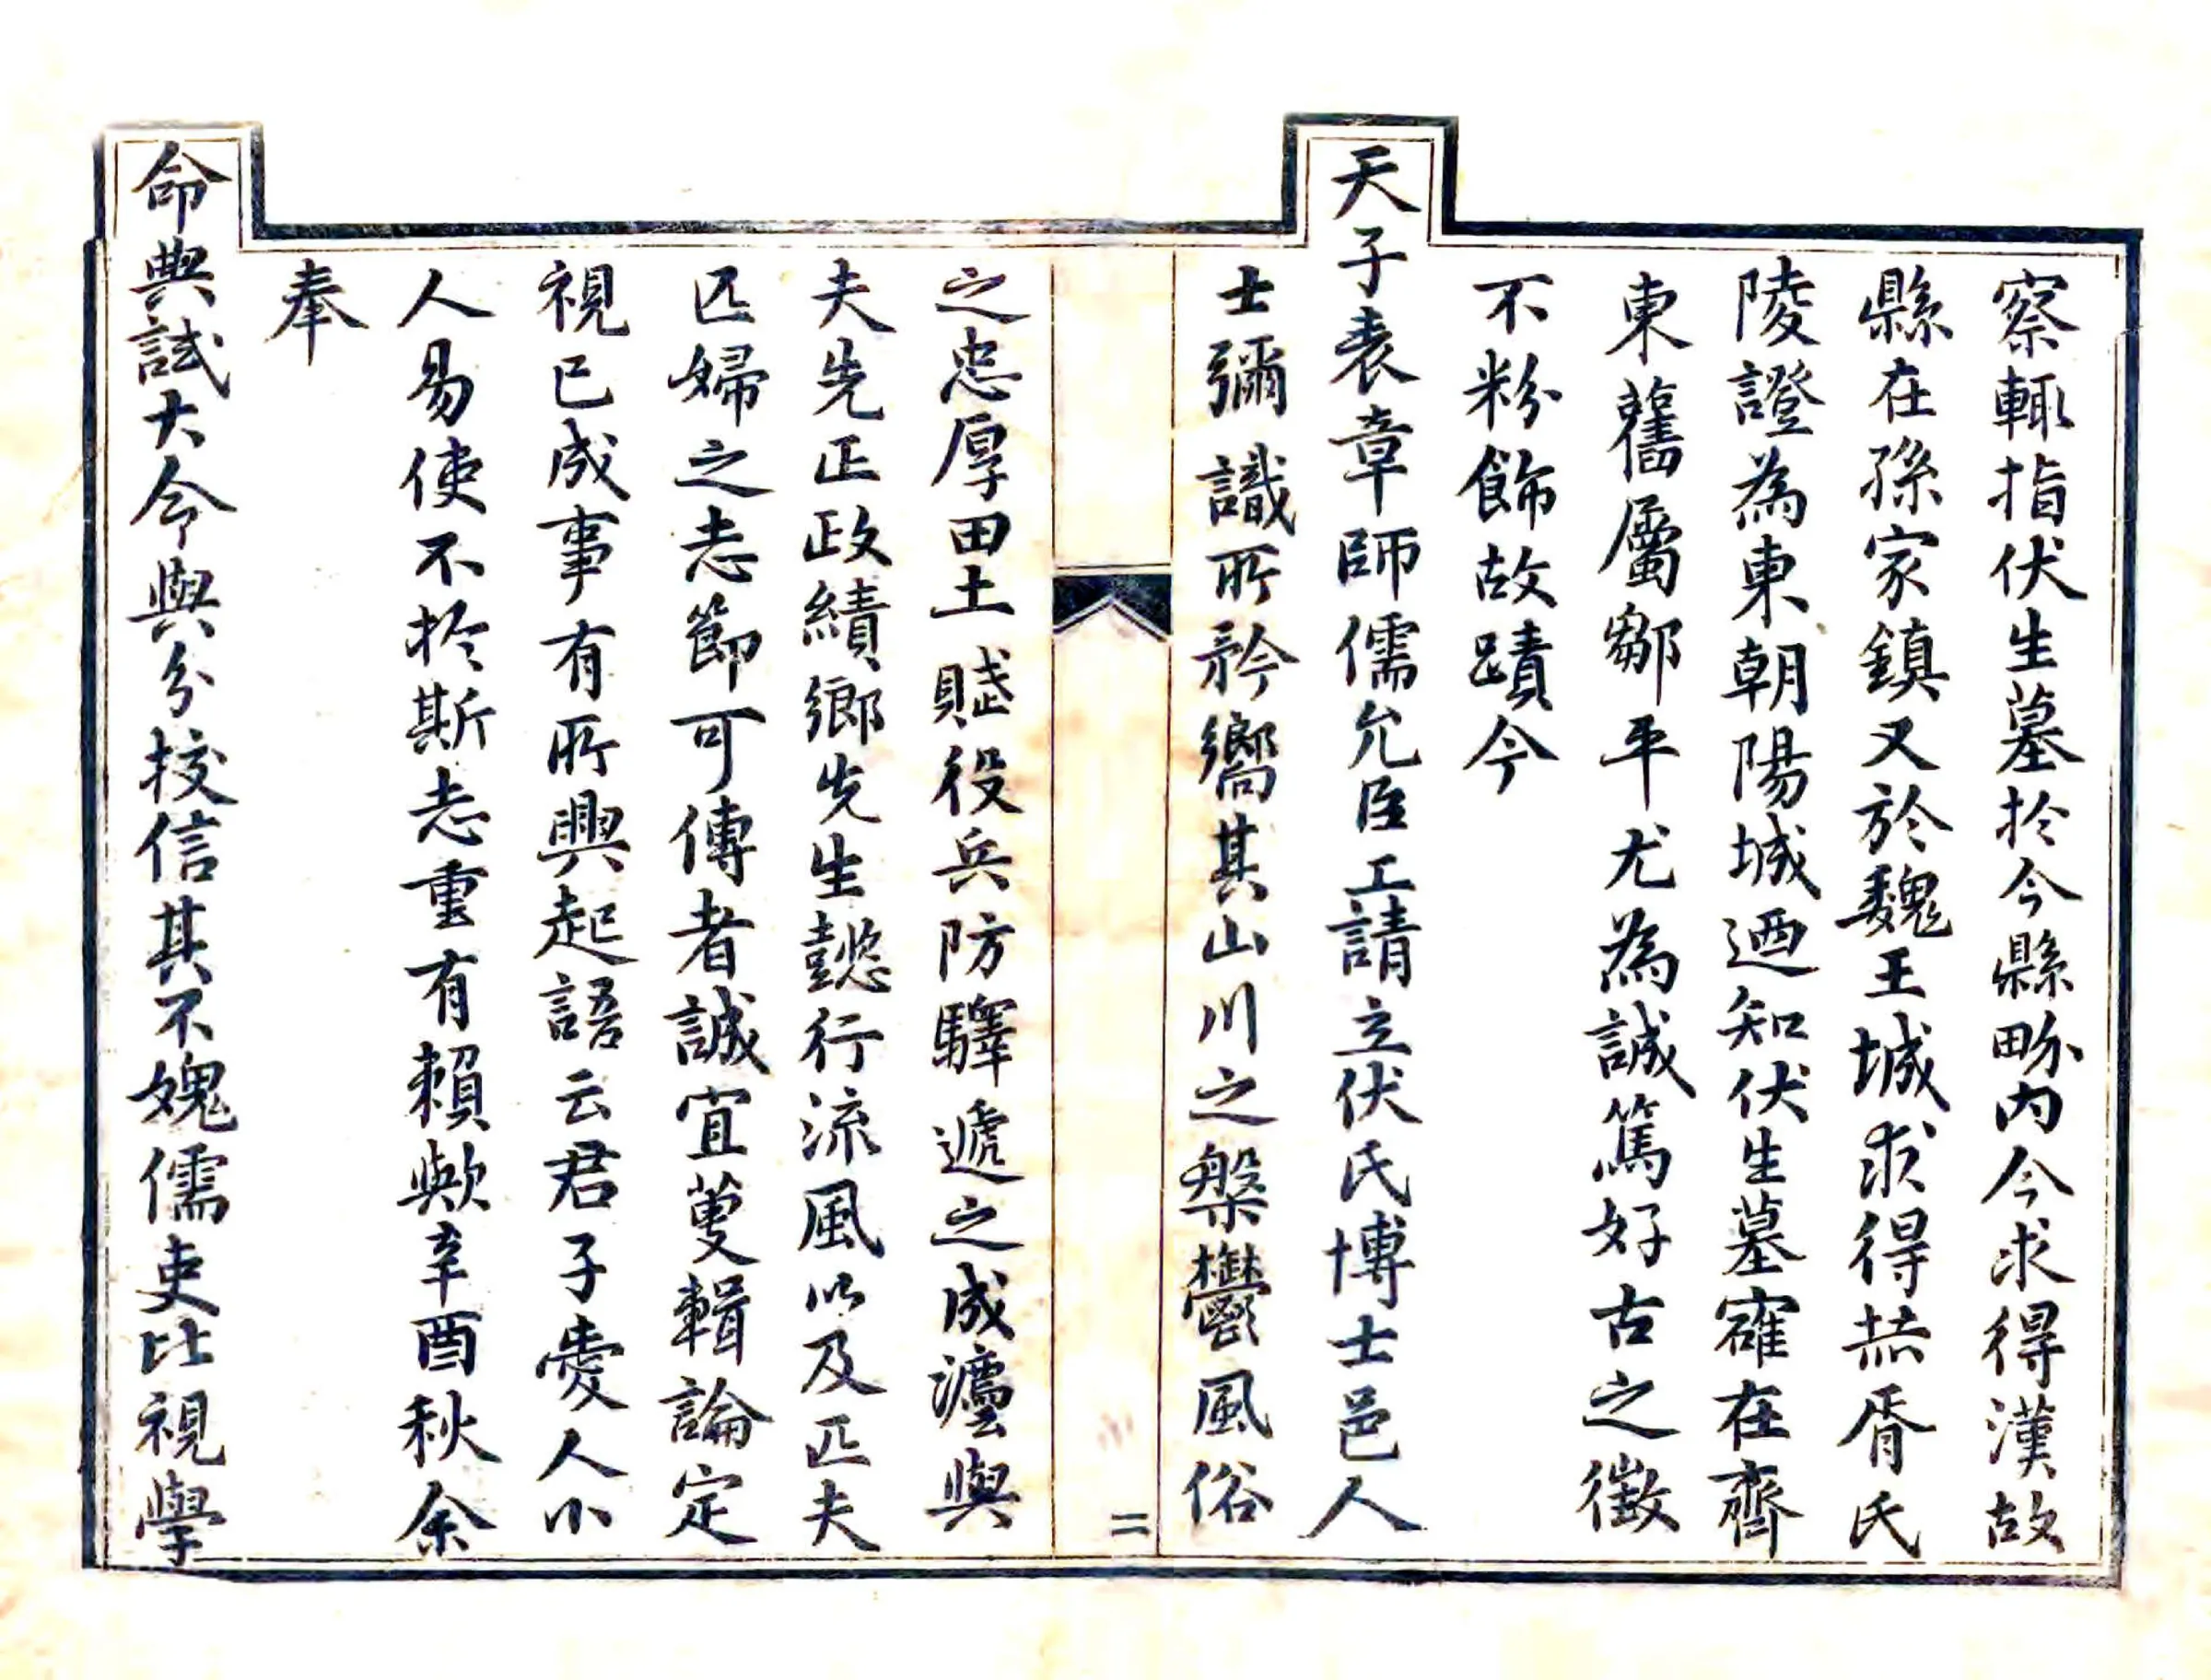 察輒指伏生墓於今縣畍內今求得漢故
縣在孫家鎮又於魏王城求得其胥氏
陵證為東朝陽城迺知伏生墓確在齊
東舊屬鄒平尤為誠篤好古之徵
不粉飾故蹟今
天子表章師儒允臣工請立伏氏博士邑人
士彌識所矜嚮其山川之槃鬱風俗
之忠厚田土賦役兵防驛遞之成灋與
夫先正政績鄉先生懿行流風以及匹夫
匹婦之志節可傳者誠宜蒐輯論定
視已成事有所興起語云君子愛人小
人易使不於斯志重有賴歟辛酉秋余
奉
命典試大令與分校信其不媿儒吏比視學
二